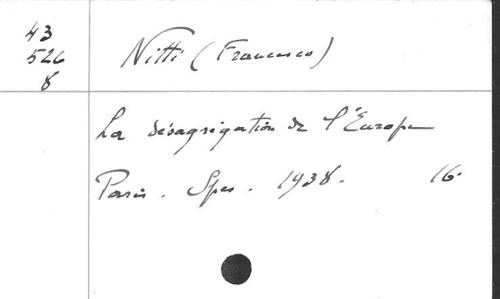 43
526
8
Nitti (Francesco)
La désagrégation de l'Europe
Paris. Spes. 1938. 16.